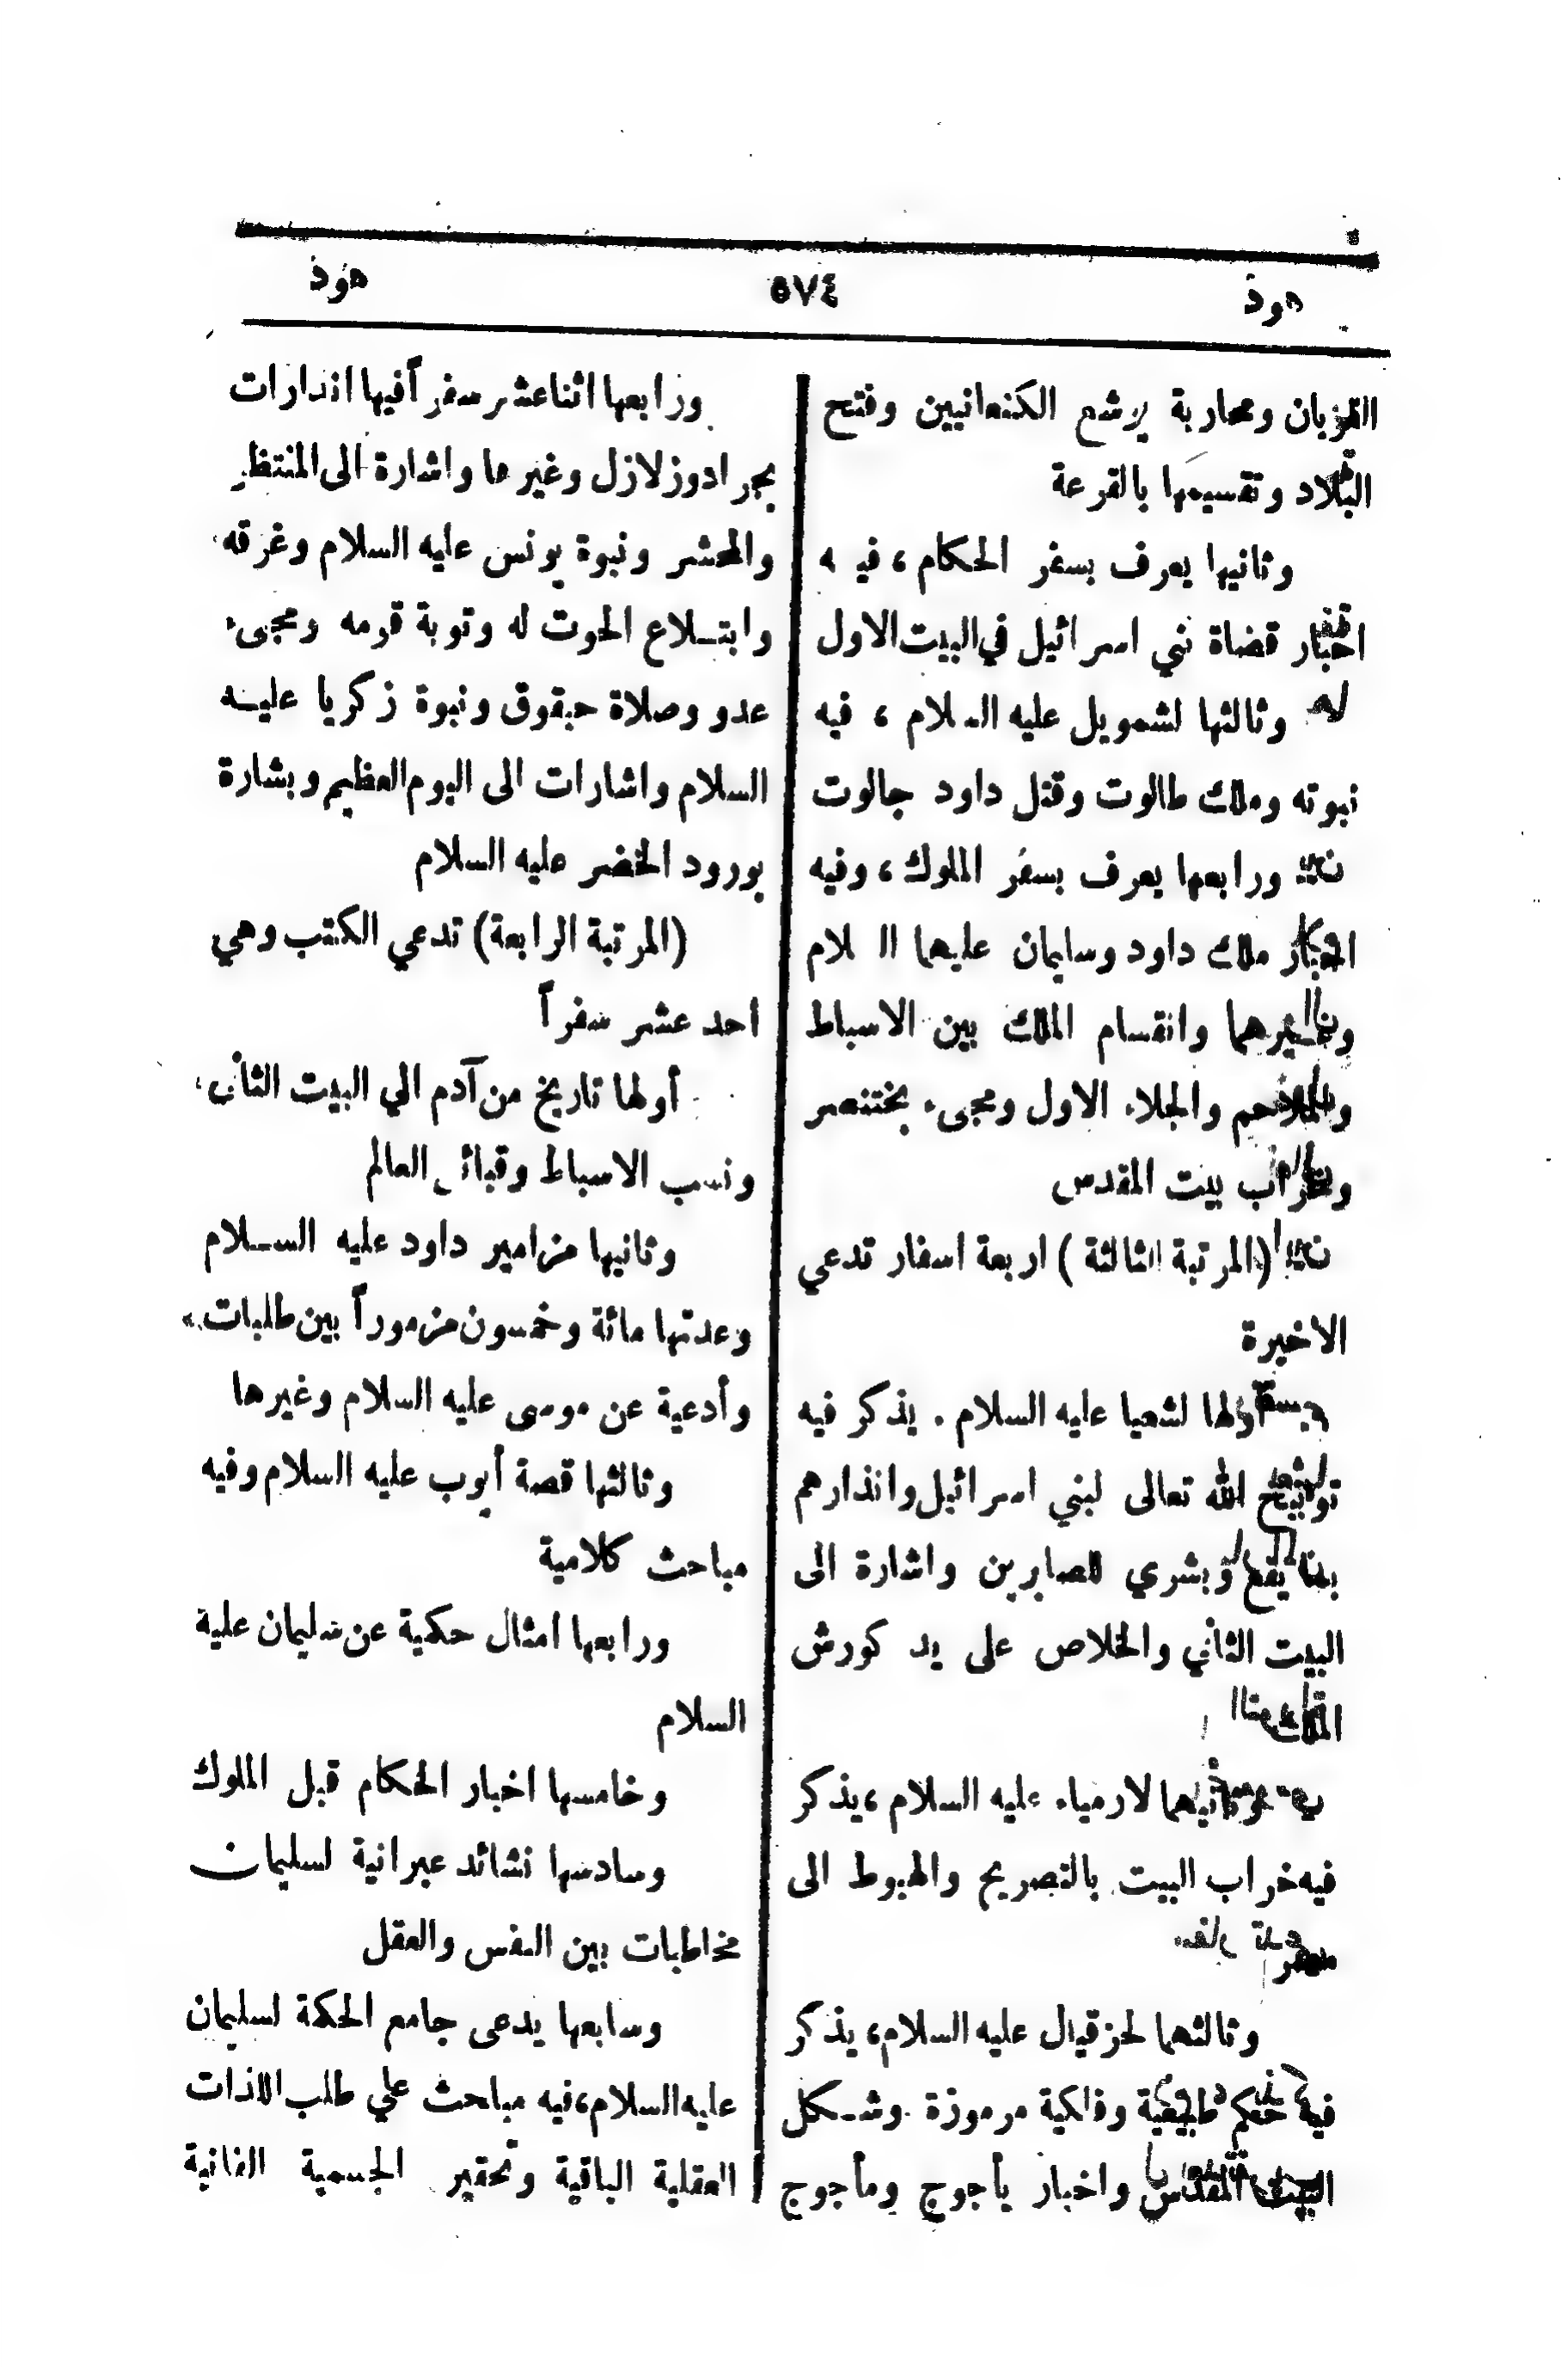 هوذ ٥٧٤ هوذ
القربان ومحاربة يوشع الكنعانيين وفتح
البلاد وتقسيمها بالقرعة
وثانيها يعرف بسفر الحكام ، فيه
اخبار قضاة بني اسرائيل في البيت الاول
وثالثها لشمويل عليه السلام ، فيه
نبوته وملك طالوت وقتل داود جالوت
ورابعها يعرف بسفر الملوك ، وفيه
اخبار ملك داود وسليمان عليهما السلام
وغيرهما وانقسام الملك بين الاسباط
والملاحم والجلاء الاول ومجىء بختنصر
وخراب بيت المقدس
(المرتبة الثالثة ) اربعة اسفار تدعي
الاخيرة
أولها لشعيا عليه السلام . يذكر فيه
توبيخ الله تعالى لبني اسرائيل وانذارهم
بما يقع وبشري للصابرين واشارة الى
البيت الثاني والخلاص على يد كورش
الملك
وثانيهما لارمياء عليه السلام ، يذكر
فيه خراب البيت بالتصريح والهبوط الى
مصر
وثالثهما لحزقيال عليه السلام ، يذكر
فيه حكم طبيعية وفلكية مرموزة وشكل
البيت المقدس واخبار يأجوج ومأجوج
ورابعها اثنا عشر سفراً فيها انذارات
بجراد وزلازل وغيرها واشارة الى المنتظر
والمحشر ونبوة يونس عليه السلام وغرقه
وابتلاع الحوت له وتوبة قومه ومجىء
عدو وصلاة حبقوق ونبوة زكريا عليه
السلام واشارات الى اليوم العظيم وبشارة
بورود الخضر عليه السلام
(المرتبة الرابعة) تدعي الكتب وهي
احد عشر سفراً
أولها تاريخ من آدم الي البيت الثاني
ونسب الاسباط وقبائل العالم
وثانيها مزامير داود عليه السلام
وعدتها مائة وخمسون مزموراً بين طلبات
وأدعية عن موسى عليه السلام وغيرها
وثالثها قصة أيوب عليه السلام وفيه
مباحث كلامية
ورابعها امثال حكمية عن سليمان علية
السلام
وخامسها اخبار الحكام قبل الملوك
وسادسها نشائد عبرانية لسليمان
مخاطبات بين النفس والعقل
وسابعها يدعى جامع الحكمة لسليمان
عليه السلام ، فيه مباحث علي طلب اللذات
العقلية الباقية وتحقير الجسمية الفانية